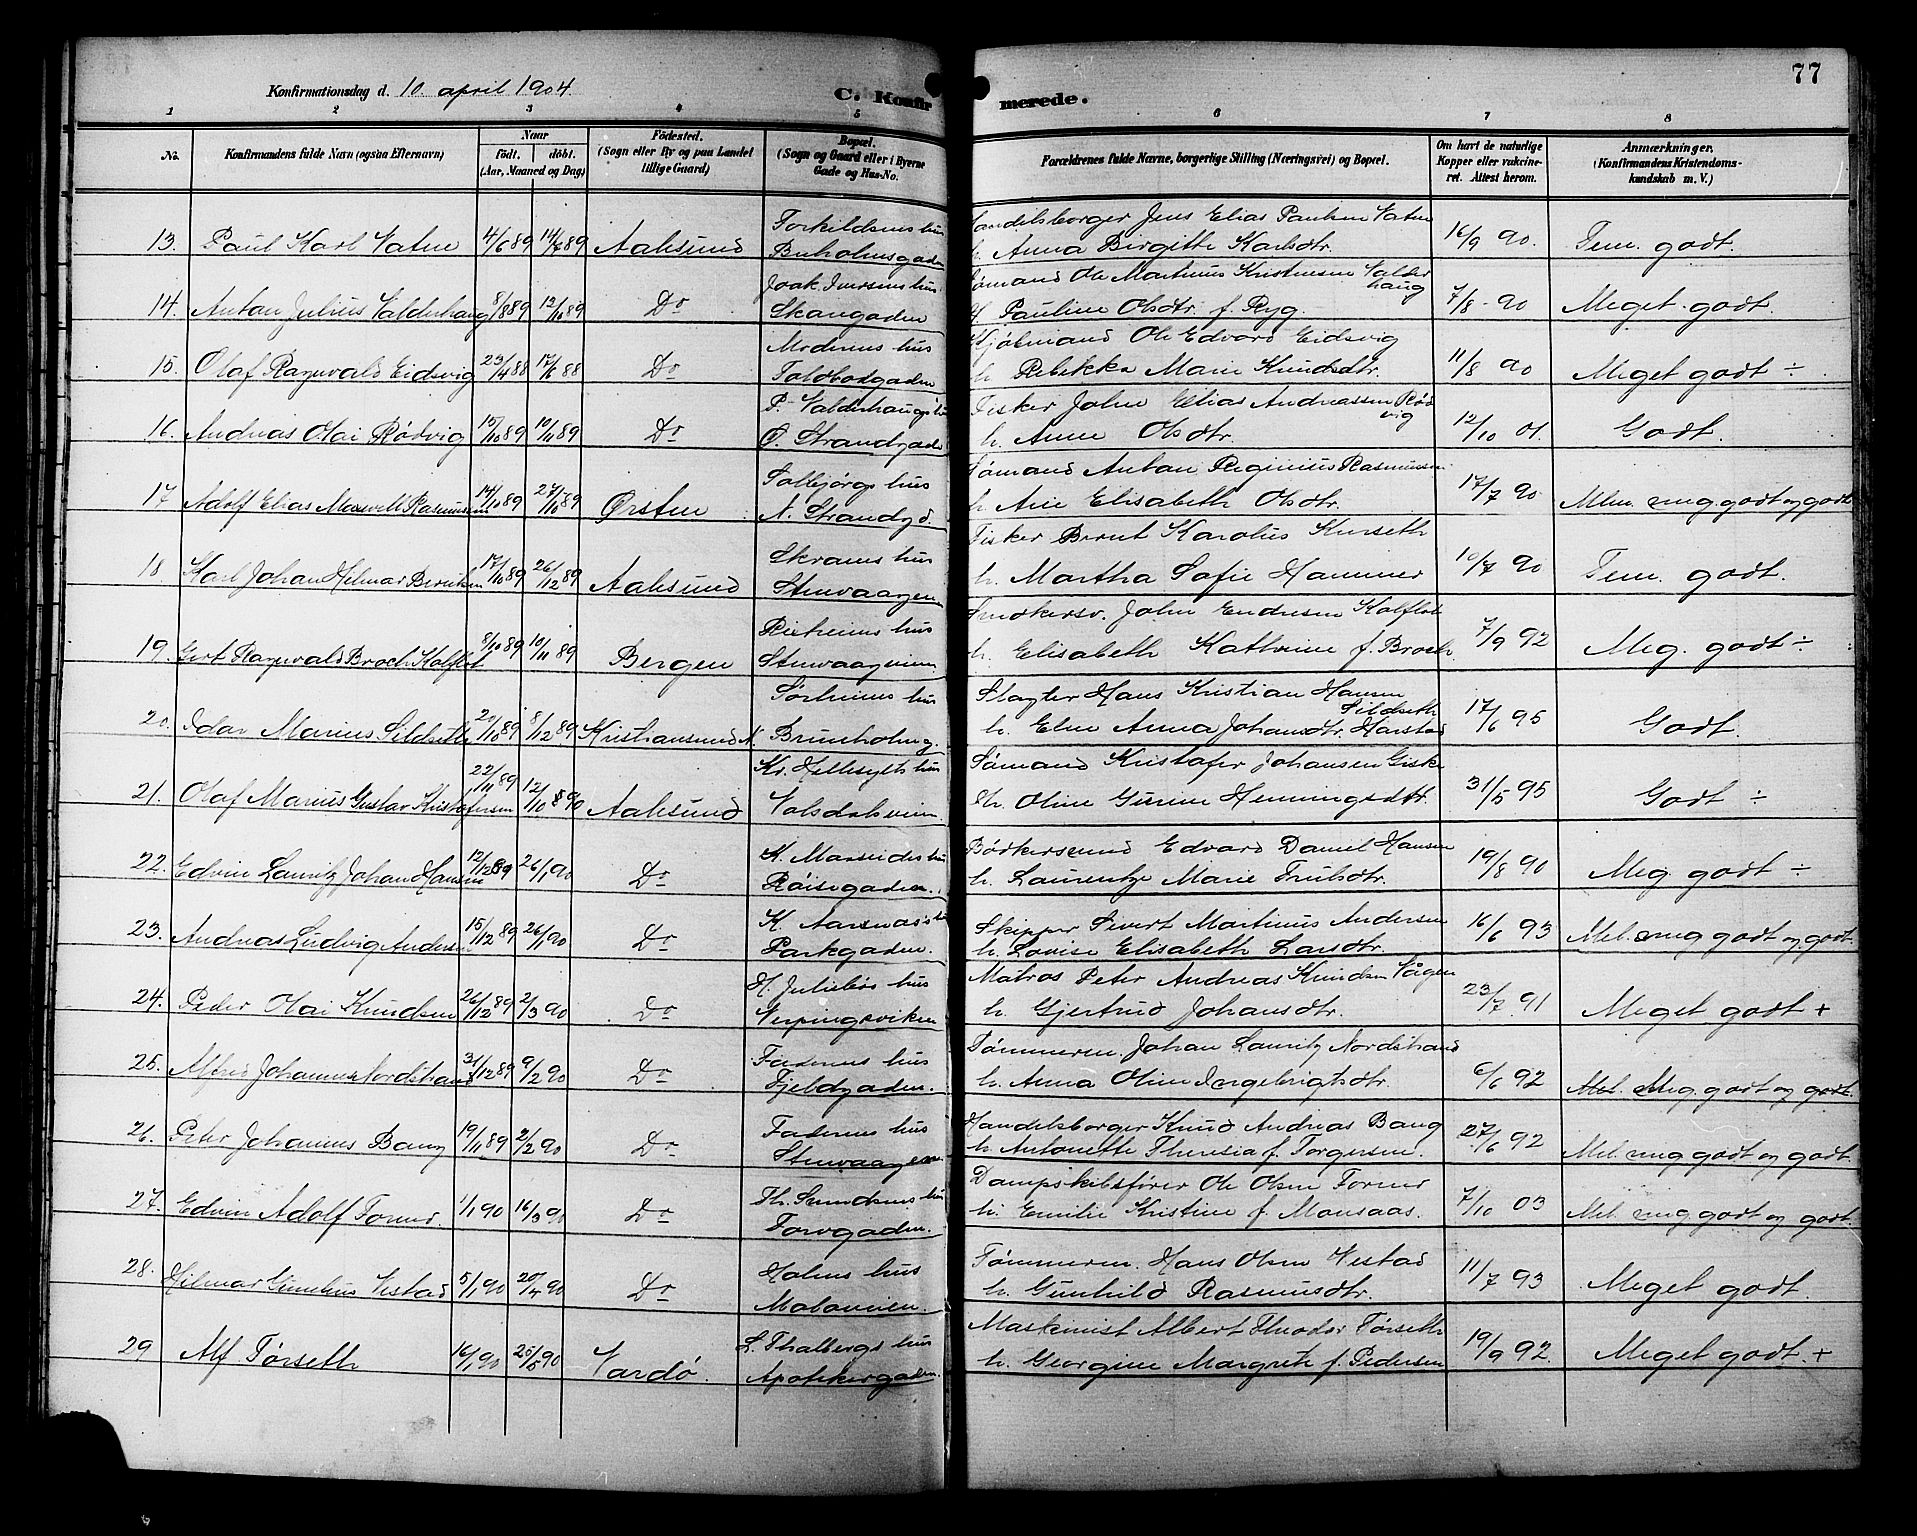 Konfirmationsdag d. 10 april 1904.
C. Konfirmerede.
77
1 2 3 4 5 6 7 8
No.
Konfirmandens fulde Navn (ogsaa Efternavn)
Naar
født. døbt.
(Aar, Maaned og Dag)
Fødested.
(Sogn eller By og paa Landet
tillige Gaard)
Bopæl.
(Sogn og Gaard eller i Byerne
Gade og Hus-No.
Forældrenes fulde Navne, borgerlige Stilling (Næringsvei) og Bopæl.
Om havt de naturlige
Kopper eller vakcine-
ret. Attest herom.
Anmærkninger,
(Konfirmandens Kristendoms-
kundskab m. V.)
Torkildsens hus Handelsborger Jens Elias Paulsen Vatne
13. Paul Karl Vatne 4/6 89 14/6 89 Aalesund Buholmsgaden h. Anna Birgitte Karlsdtr. 16/9 90. Tem. godt.
Joak Iversens hus Sømand Ole Martinus Kristensen Valderhaug
14. Anton Julius Valderhaug 8/8 89 13/10 89 Do Skaregaden H. Pauline Olsdtr. f. Ryg. 7/8 90 Meget godt.
Moderens hus Kjøbmand Ole Edvard Eidsvig
15. Olaf Ragnvald Eidsvig 23/4 88 17/6 88 Do Toldbodgaden h. Rebekka Marie Knudsdtr. 11/8 90 Meget godt ÷
P. Valderhaugs hus Fisker John Elias Andreassen Rødvig
16. Andreas Olai Rødvig 15/10 89 10/11 89 Do Ø. Strandgade h. Anne Olsdtr. 12/10 01. Godt.
Solbjørgs hus Sømand Anton Reginius Rasmussen
17 Adolf Elias Maxwell Rasmussen 14/10 89 27/10 89 Ørsten N. Strandgd. h. Ane Elisabeth Olsdtr. 17/7 90 Mlm. meg. godt og godt
Skrams hus Fisker Bernt Karolus Kurseth
18 Karl Johan Hilmar Berntsen 17/10 89 26/12 89 Aalesund Stenvaagen h. Martha Sofie Hammer 10/7 90 Tem. godt.
hus Snedkersv. John Endresen Kolflot
19. Gert Ragnvald Broch Kolflot 8/10 89 10/11 89 Bergen Stenvaagveien h. Elisabeth Kathrine f. Broch. 7/9 92 Meg. godt ÷
Sørheims hus Slagter Hans Kristian Hansen Sildseth
20. Idar Marius Sildseth 20/10 89 8/12 89 Kristiansund N. Brunholmg. h. Elen Anna Johansdtr. Harstad 17/6 95 Godt.
Kr. Hellesylts hus Sømand Kristofer Johansen Giske
21. Olaf Marius Gustav Kristofersen 22/11 89 12/10 890 Aalesund Volsdalsveien h. Oline Gurine Henningsdtr. 31/5 95 Godt ÷
hus Bødkersvend Edvard Daniel Hansen
22. Edvin Lauritz Johan Hansen 12/12 89 26/1 90 Do Røisegaden. h. Laurentze Marie Trulsdtr. 19/8 90 Meg. godt ÷
K. Aarsnæs's Skipper Sivert Martinus Andersen
23. Andreas Ludvig Andersen 15/12 89 26/1 90 Do Parkgaden. h. Lovise Elisabeth Larsdtr. 16/6 93 Mel. meg godt og godt
H. Juliebøs hus Matros Peter Andreas Knudsen Vågen
24. Peder Olai Knudsen 26/12 89 2/3 90 Do Nerpingsviken h. Gjertrud Johansdtr. 23/7 91 Meget godt +
Faderens hus Tømmerm. Johan Lauritz Nordstrand
25. Alfred Johannes Nordstrand 31/12 89 9/2 90 Do Fjeldgaden. h. Anna Oline Ingebrigtsdtr. 6/6 92 Mel. Meg. godt og godt.
Faderens hus Handelsborger Knud Andreas Bang
26. Peter Johannes Bang 19/11 89 2/2 90 Do Stenvaagen h. Antonette Theresia f. Torgersen. 27/6 92 Mel. meg godt og godt.
Th. Smedsens hus Dampskibsfører Ole Olsen Forned
27. Edvin Adolf Forned. 1/1 90 16/3 90 Do Torvgaden. h. Emilie Kristine f. Monsaas. 7/10 03 Mel. meg. godt og godt.
Holms hus Tømmerm. Hans Olsen Vestad
28. Hilmar Gunelius Vestad 5/1 90 20/4 90 Do Moloveien h. Gunhild Rasmusdtr. 11/7 93 Meget godt.
L. Thalbergs hus Maskinist Albert Theodor Tørseth
29 Alf Tørseth 16/1 90 25/5 90 Vardø. Apothekergaden. h. Georgine Margrete f. Pedersen 19/9 92 Meget godt. +